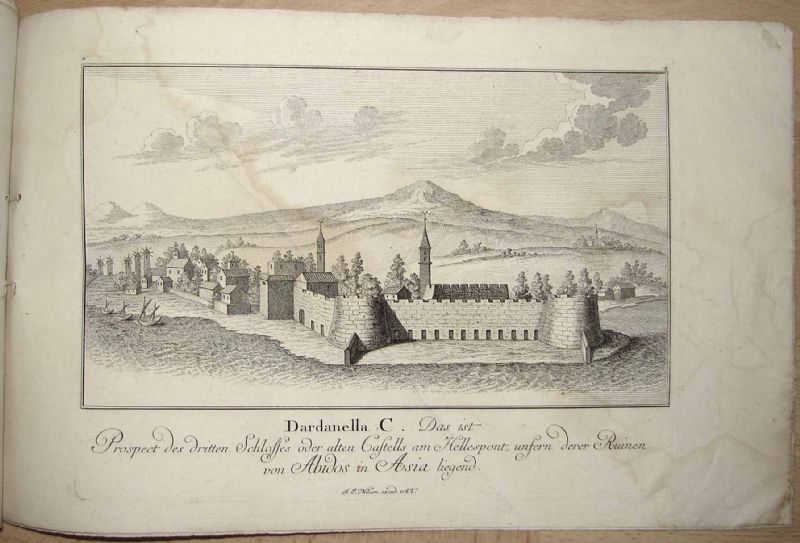 Dardanella C. Das ist
Prospect des dritten Schlosses oder alten Castells am Hellespont, unfern derer Ruinen
von Abidos in Asia liegend.
J. E. Nilson excud. A.V.